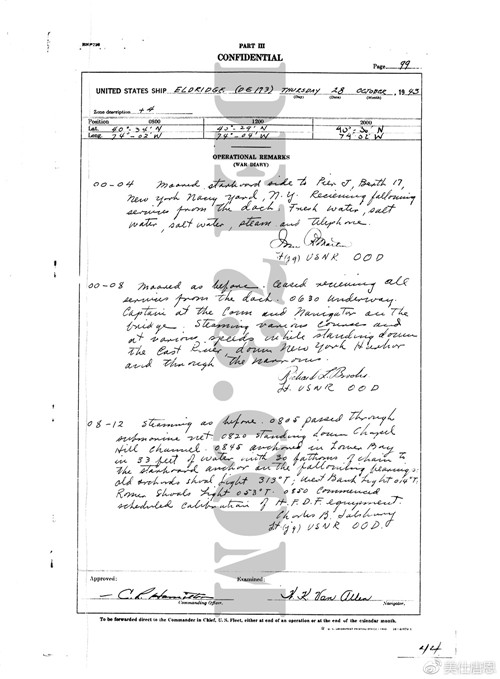 PART III
CONFIDENTIAL
Page 99
UNITED STATES SHIP ELDRIDGE (DE 173) THURSDAY 28 OCTOBER, 1943
(Day) (Date) (Month)
Zone description +4
Position 0800 1200 2000
Lat. 40°-34' N 40°-29' N 40°-30' N
Long. 74°-02' W 74°-04' W 74°02' W
OPERATIONAL REMARKS
(WAR DIARY)
00-04 Moored starboard side to Pier J, Berth 17,
New York Navy Yard, N.Y. Recieving following
services from the dock. Fresh water, salt
water, salt water, steam and telephone.
Lt(jg) USNR OOD
00-08 Moored as before. Ceased receiving all
services from the dock. 0630 Underway.
Captain at the Conn and Navigator on the
bridge. Steaming various courses and
at various speeds while standing down
the East River, down New York Harbor
and through the narrows.
Richard L. Brooks
Lt. USNR OOD
08-12 Steaming as before. 0805 passed through
submarine net 0820 standing down Chapel
Hill Channel. 0845 anchored in Lower Bay
in 33 feet of water with 30 fathoms of chain to
the starboard anchor on the following bearings:
old orchards shoal Light 313°T; West Bank Light 014°T.
Romer Shoals Light 053°T. 0850 Commenced
scheduled calibration of H.F.D.F. equipment.
Charles B.
Lt (jg) USNR OOD.
Approved: Examined:
C. R. Hamilton K. K. Van Allen
Commanding Officer. Navigator.
To be forwarded direct to the Commander in Chief, U. S. Fleet, either at end of an operation or at the end of the calendar month.
44
美仕唐恩